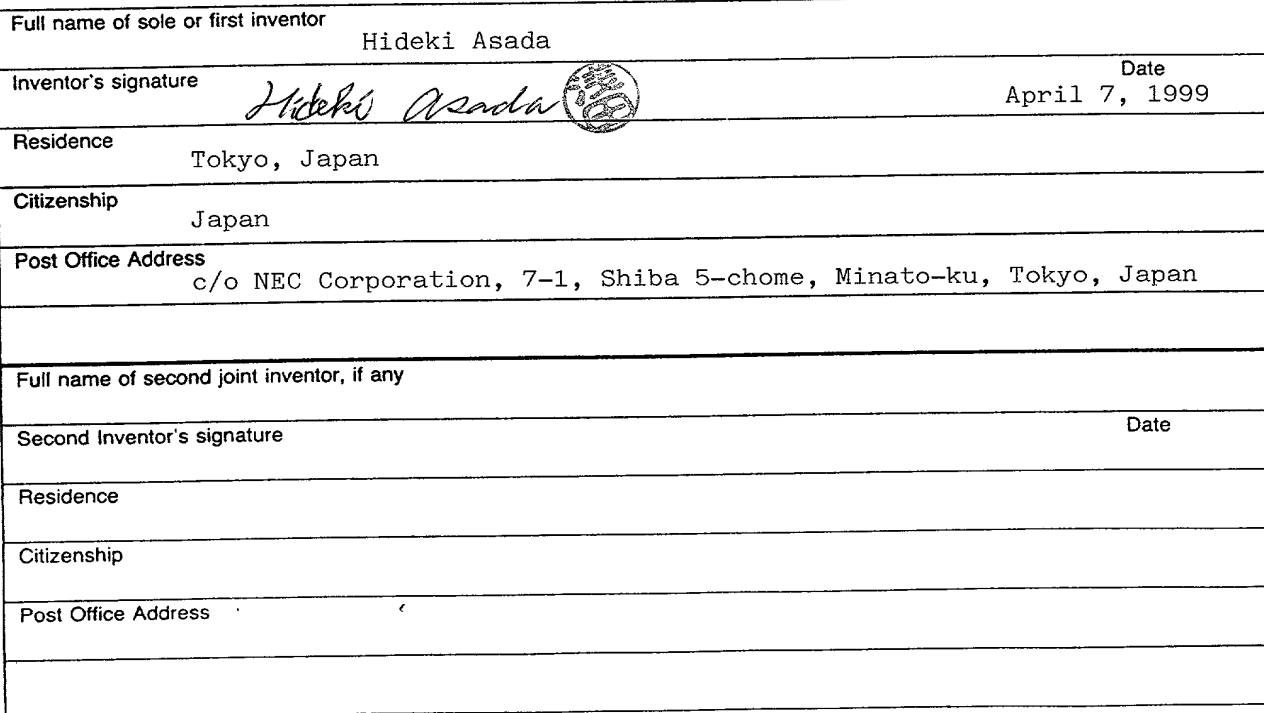 Full name of sole or first inventor
Hideki Asada
Inventor's signature
Hideki Asada
Date
April 7, 1999
Residence
Tokyo, Japan
Citizenship
Japan
Post Office Address
c/o NEC Corporation, 7-1, Shiba 5-chome, Minato-ku, Tokyo, Japan
Full name of second joint inventor, if any
Second Inventor's signature
Date
Residence
Citizenship
Post Office Address